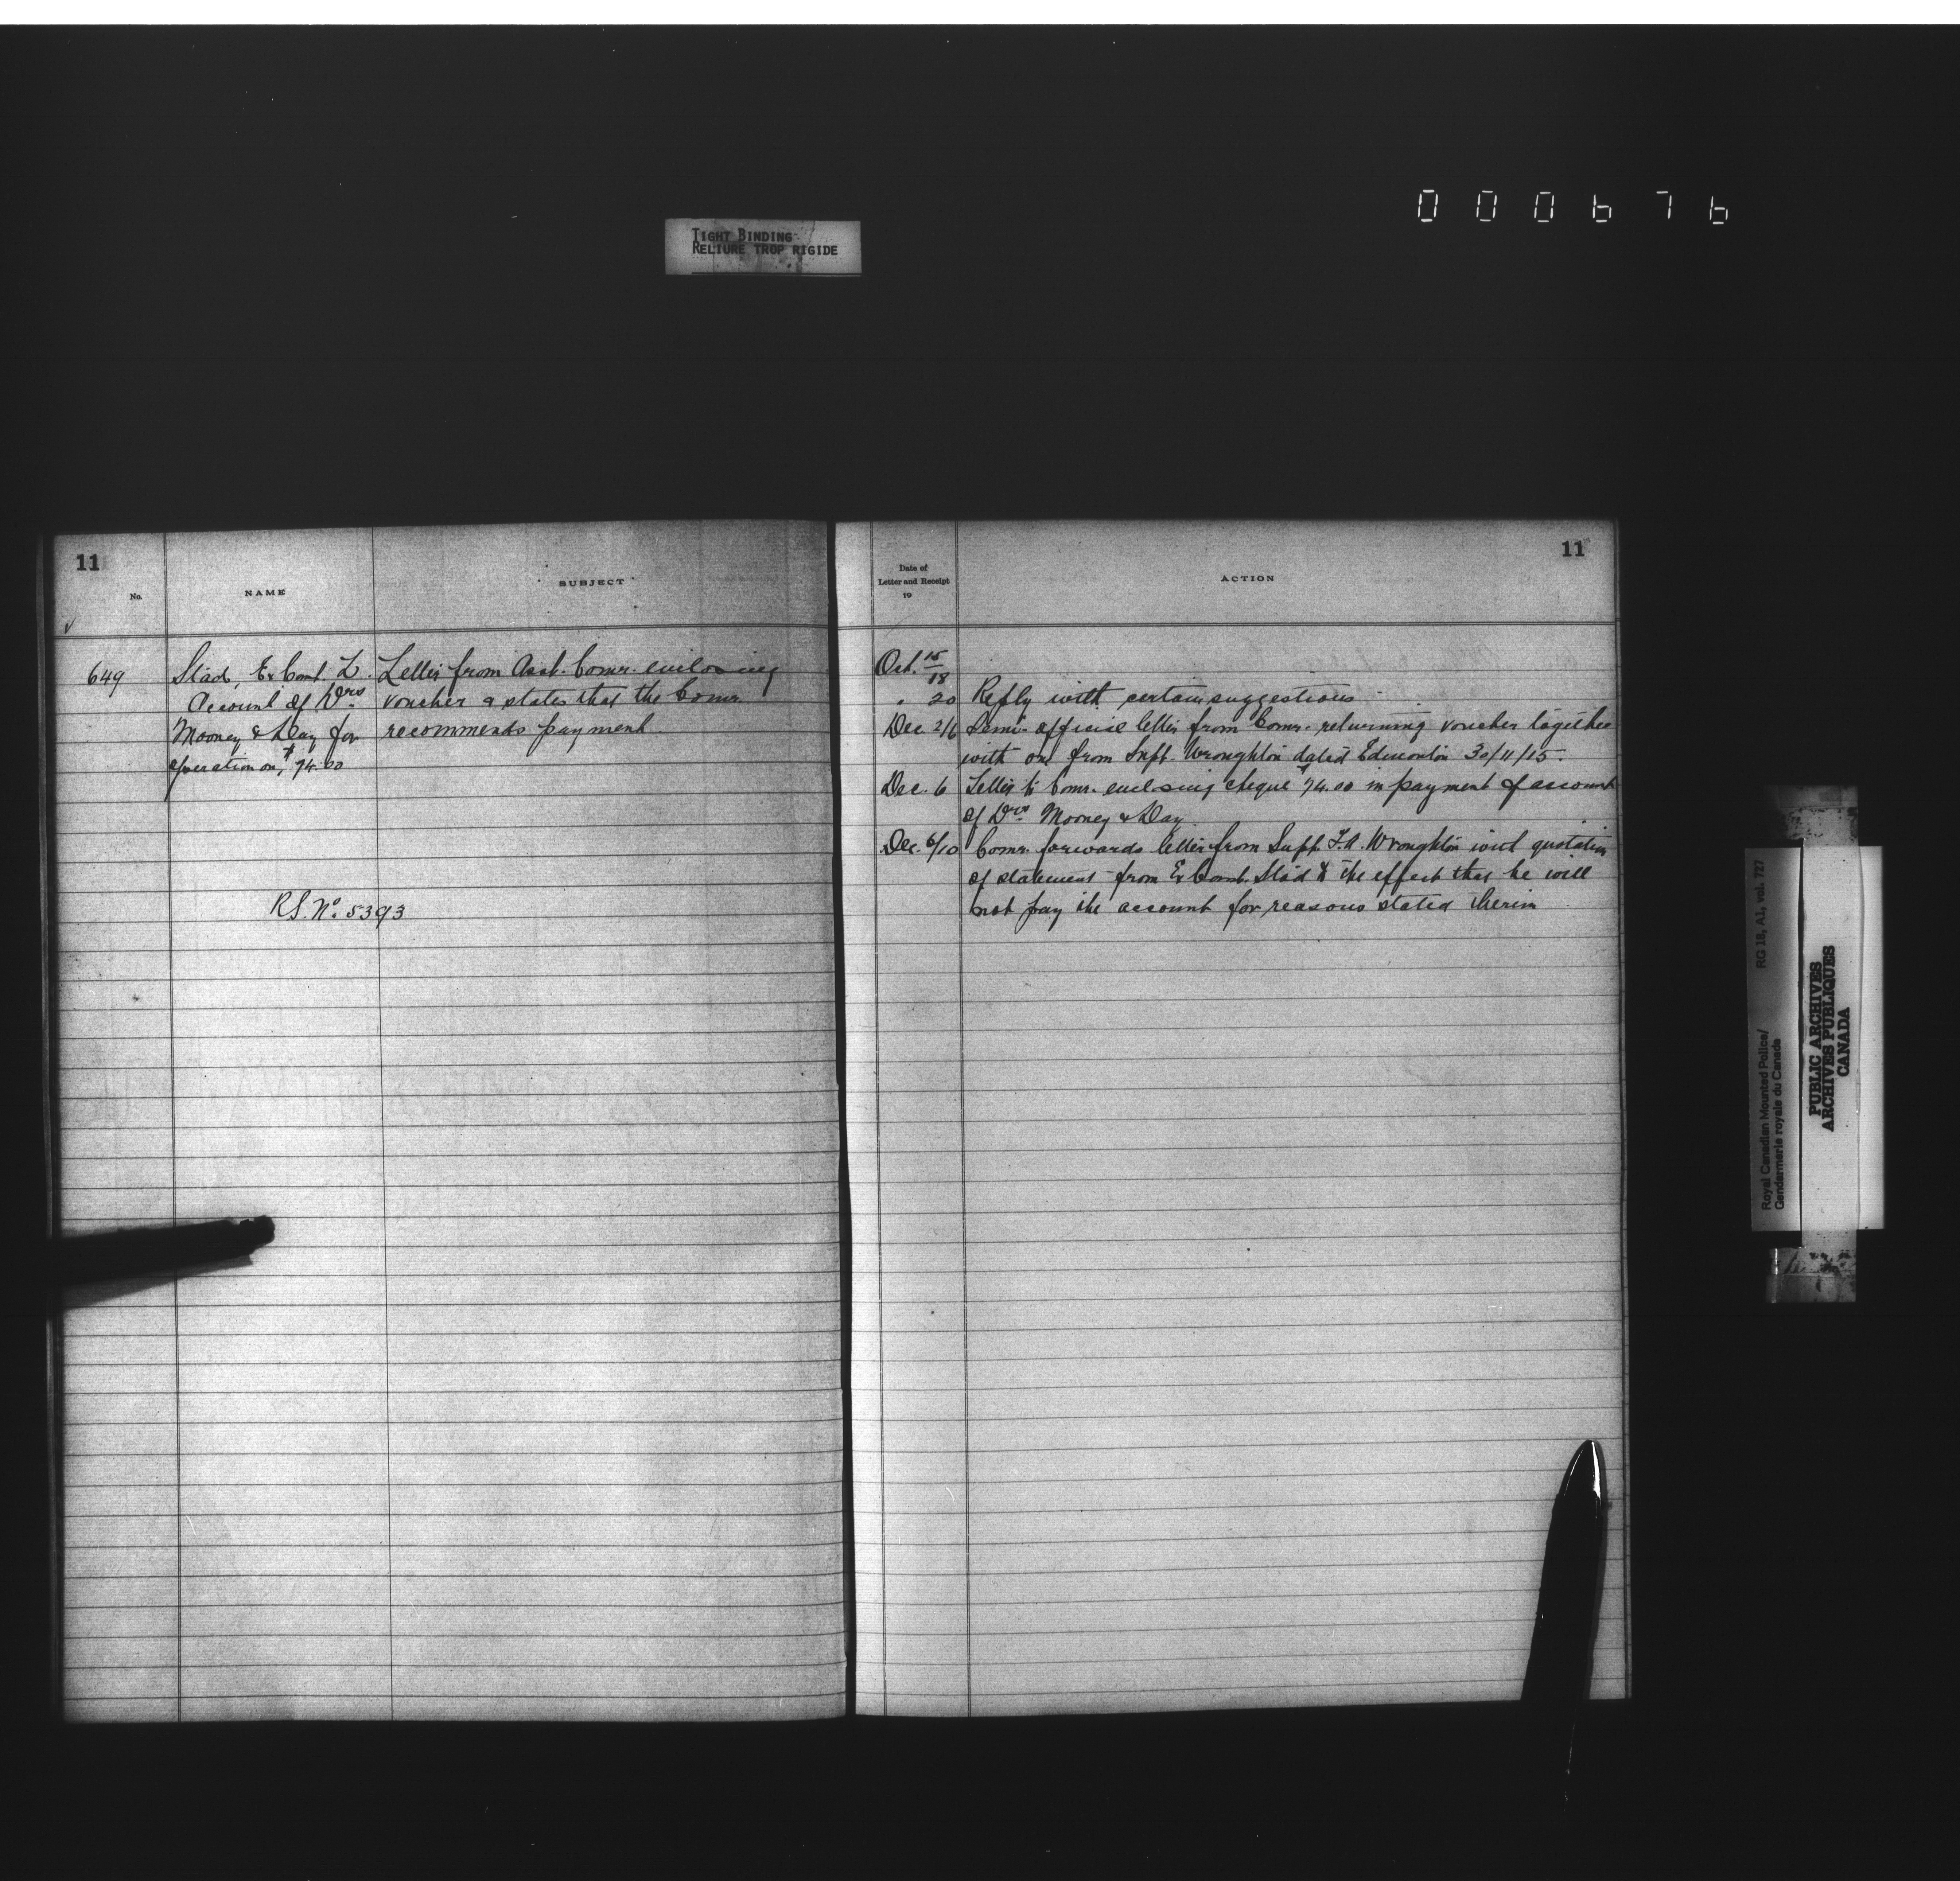 000676
TIGHT BINDING
RELIURE TROP RIGIDE
11
No.
NAME
SUBJECT
649
Slad, Ex Const. L.
Account of Drs
Mooney & Day for
operation on, $74.00
Letter from Asst. Comr. enclosing
voucher & states that the Comr.
recommends payment
R.S. No. 5393
11
Date of
Letter and Receipt
19
ACTION
Oct. 15/18
" 20 Reply with certain suggestions
Dec 2/6 Semi-official letter from Comr. returning voucher together
with one from Supt. Wroughton dated Edmonton 30/11/15.
Dec. 6 Letter to Comr. enclosing cheque $74.00 in payment of account
of Drs Mooney & Day.
Dec. 6/10 Comr. forwards letter from Supt. T.A. Wroughton with quotation
of statement from Ex Const. Slad to the effect that he will
not pay the account for reasons stated therein
Royal Canadian Mounted Police/
Gendarmerie royale du Canada
RG 18, A1, vol. 727
PUBLIC ARCHIVES
ARCHIVES PUBLIQUES
CANADA